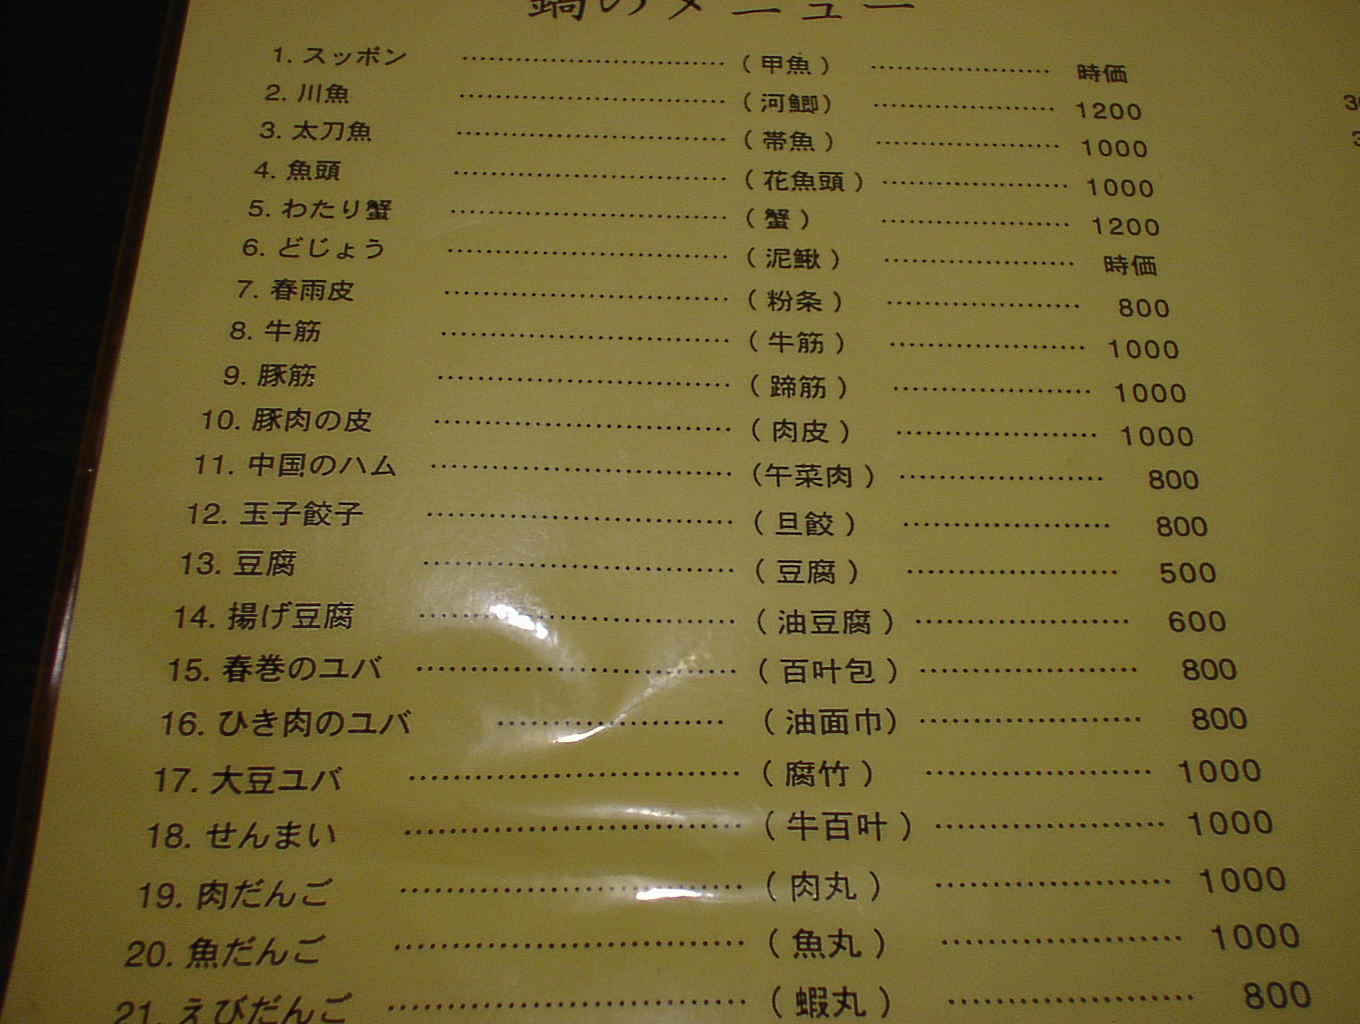 鍋のメニュー
1. スッポン ……… ( 甲魚 ) ……… 時価
2. 川魚 ……… ( 河鯽) ……… 1200
3. 太刀魚 ……… ( 帯魚 ) ……… 1000
4. 魚頭 ……… ( 花魚頭 ) ……… 1000
5. わたり蟹 ……… ( 蟹 ) ……… 1200
6. どじょう ……… ( 泥鰍 ) ……… 時価
7. 春雨皮 ……… ( 粉条 ) ……… 800
8. 牛筋 ……… ( 牛筋 ) ……… 1000
9. 豚筋 ……… ( 蹄筋 ) ……… 1000
10. 豚肉の皮 ……… ( 肉皮 ) ……… 1000
11. 中国のハム ……… (午菜肉 ) ……… 800
12. 玉子餃子 ……… ( 旦餃 ) ……… 800
13. 豆腐 ……… ( 豆腐 ) ……… 500
14. 揚げ豆腐 ……… ( 油豆腐 ) ……… 600
15. 春巻のユバ ……… ( 百叶包 ) ……… 800
16. ひき肉のユバ ……… ( 油面巾) ……… 800
17. 大豆ユバ ……… ( 腐竹 ) ……… 1000
18. せんまい ……… ( 牛百叶 ) ……… 1000
19. 肉だんご ……… ( 肉丸 ) ……… 1000
20. 魚だんご ……… ( 魚丸 ) ……… 1000
21. えびだんご ……… ( 蝦丸 ) ……… 800